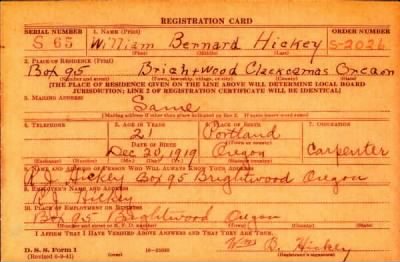 REGISTRATION CARD
SERIAL NUMBER 1. NAME (Print) ORDER NUMBER
S 65 William Bernard Hickey S-2026
(First) (Middle) (Last)
2. PLACE OF RESIDENCE (Print)
Box 95 Brightwood Clackamas Oregon
(Number and street) (Town, township, village, or city) (County) (State)
[THE PLACE OF RESIDENCE GIVEN ON THE LINE ABOVE WILL DETERMINE LOCAL BOARD
JURISDICTION; LINE 2 OF REGISTRATION CERTIFICATE WILL BE IDENTICAL]
3. MAILING ADDRESS
Same
[Mailing address if other than place indicated on line 2. If same insert word same]
4. TELEPHONE 5. AGE IN YEARS 6. PLACE OF BIRTH 7. OCCUPATION
21 Portland
DATE OF BIRTH
Dec 20, 1919 Oregon Carpenter
(Exchange) (Number) (Mo.) (Day) (Yr.) (State or country)
8. NAME AND ADDRESS OF PERSON WHO WILL ALWAYS KNOW YOUR ADDRESS
R J Hickey Box 95 Brightwood Oregon
9. EMPLOYER'S NAME AND ADDRESS
R J Hickey
10. PLACE OF EMPLOYMENT OR BUSINESS
Box 95 Brightwood Oregon
(Number and street or R. F. D. number) (Town) (County) (State)
I AFFIRM THAT I HAVE VERIFIED ABOVE ANSWERS AND THAT THEY ARE TRUE.
D. S. S. Form 1
(Revised 6-9-41) 16—21630 Wm B. Hickey
(Registrant's signature)